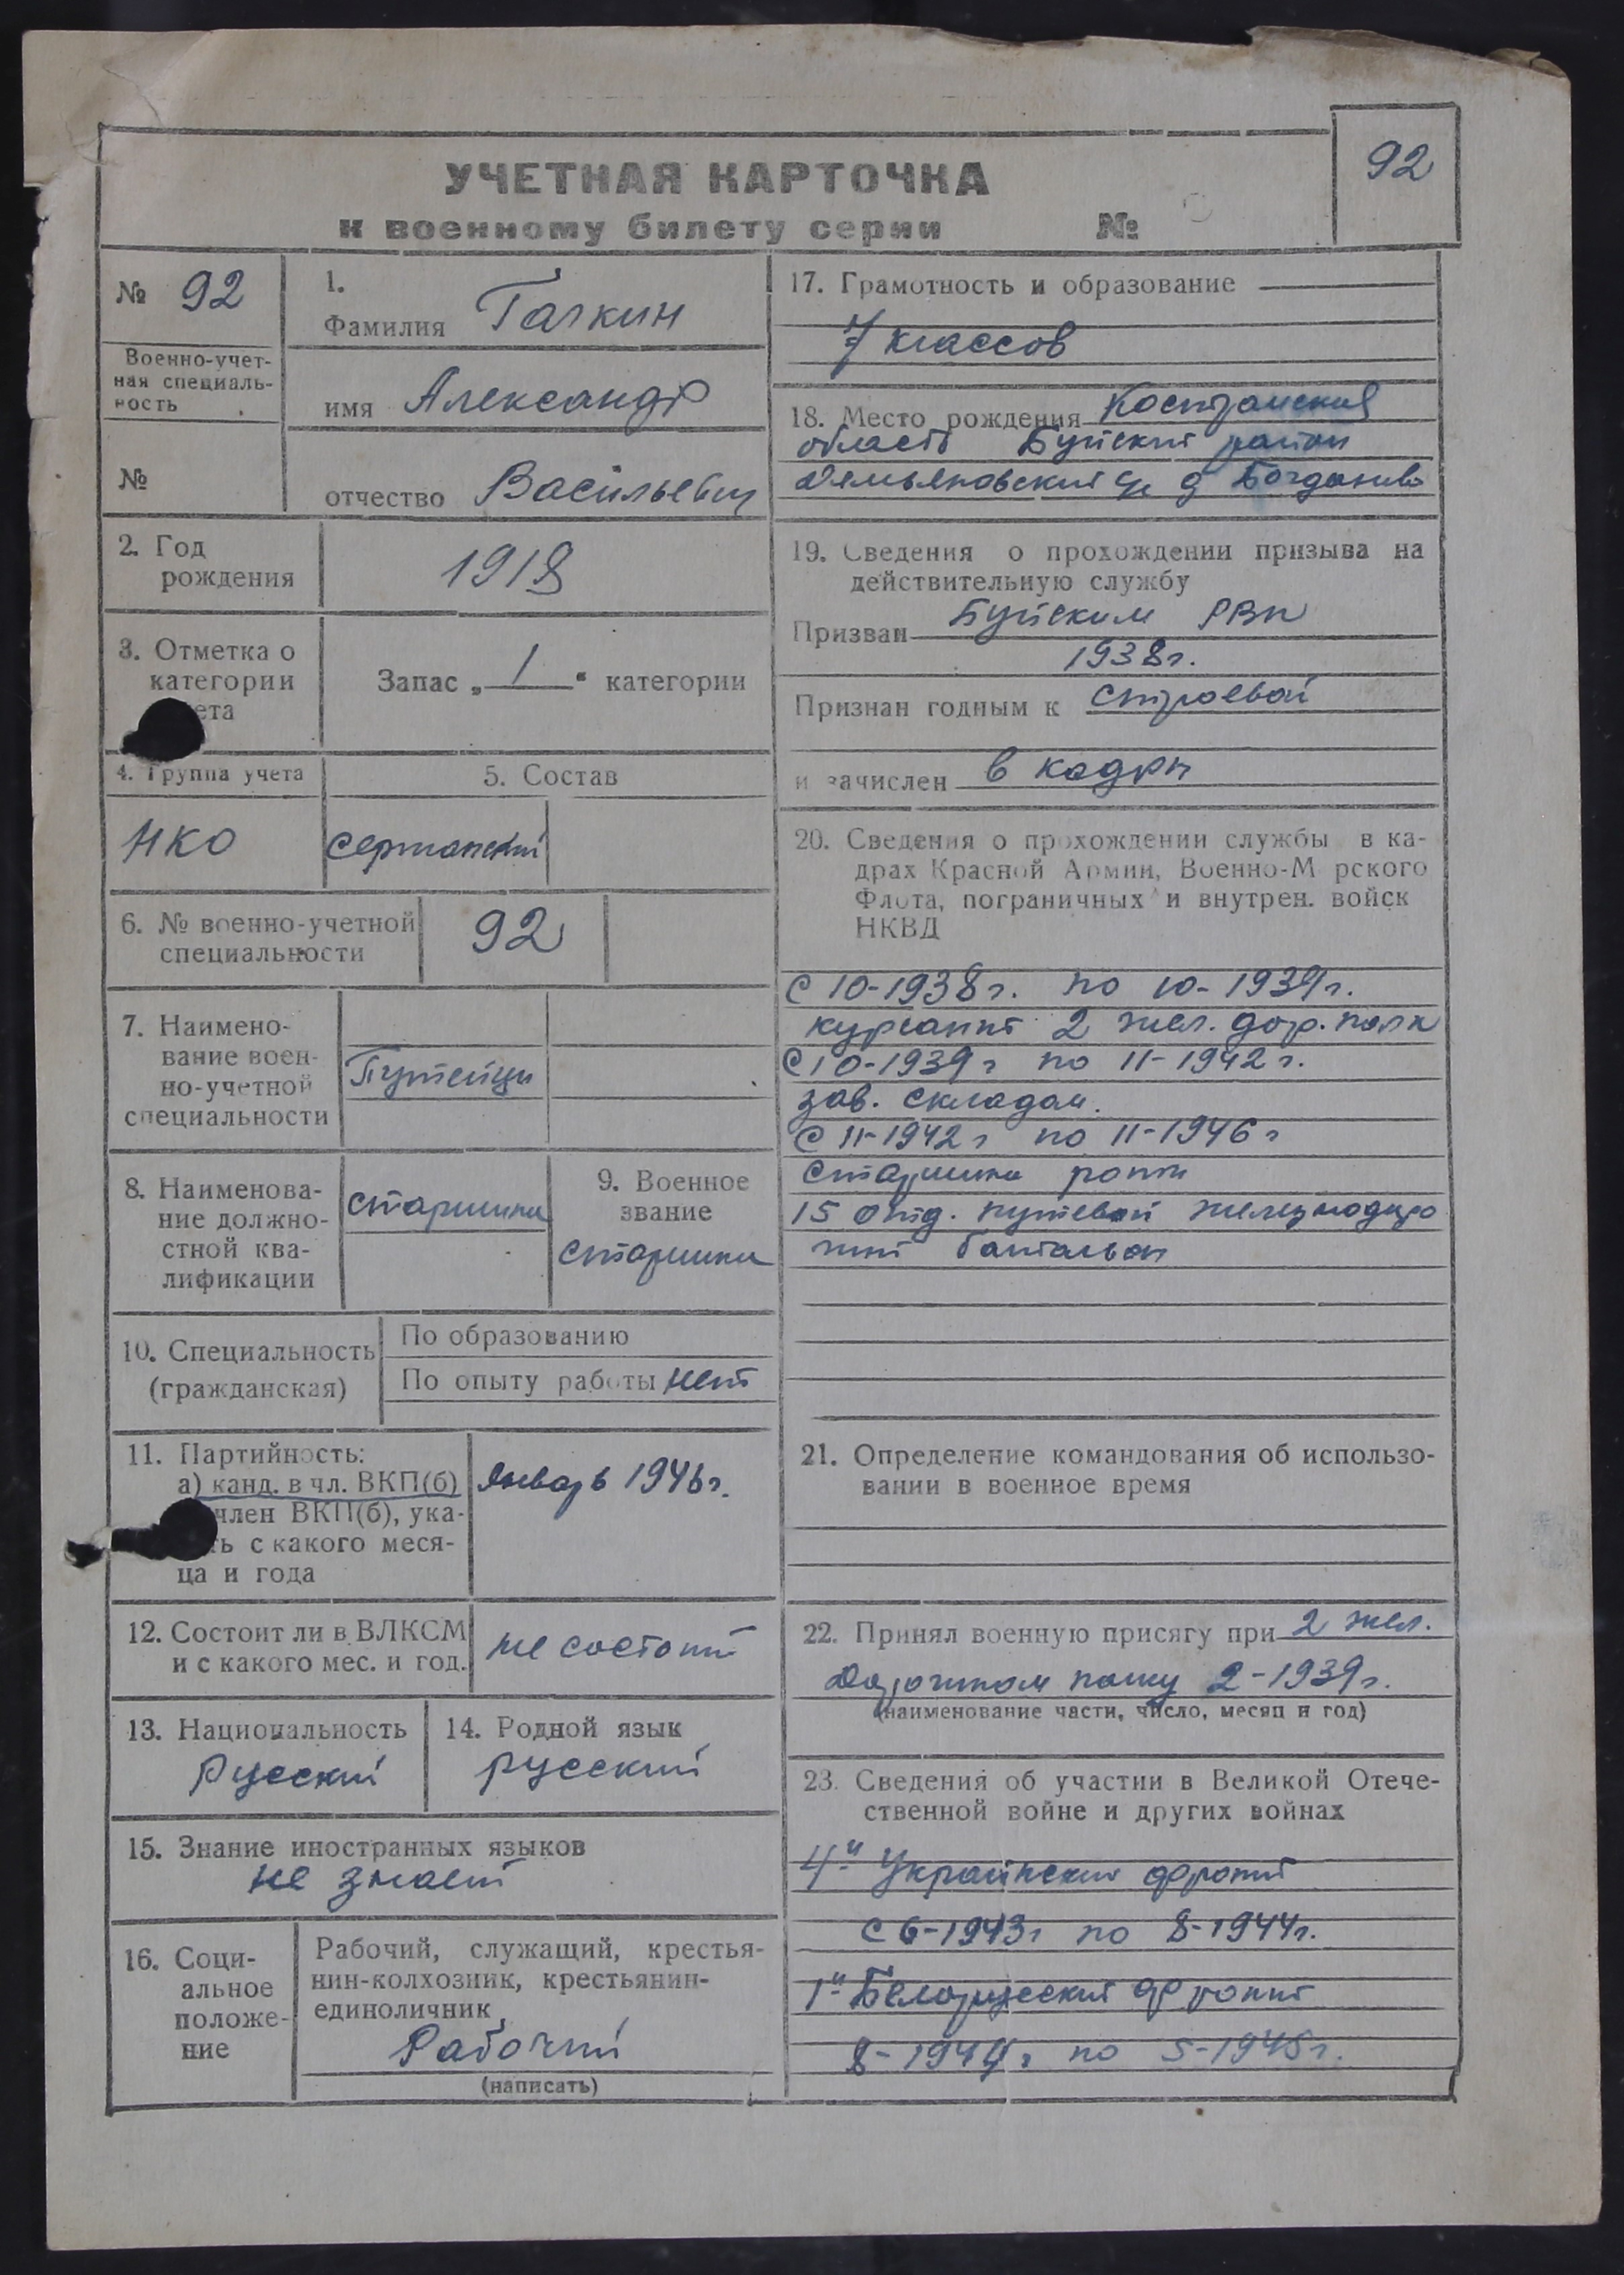 92
УЧЕТНАЯ КАРТОЧКА
к военному билету серии №
№ 92
Военно-учет-
ная специаль-
ность
№
1.
Фамилия Галкин
имя Александр
отчество Васильевич
2. Год
рождения
1918
3. Отметка о
категории
ета
Запас „ 1 “ категории
4. Группа учета
НКО
5. Состав
сержантский
6. № военно-учетной
специальности
92
7. Наимено-
вание воен-
но-учетной
специальности
Путейцы
8. Наименова-
ние должно-
стной ква-
лификации
старшина
9. Военное
звание
старшина
10. Специальность
(гражданская)
По образованию
По опыту работы нет
11. Партийность:
а) канд. в чл. ВКП(б)
член ВКП(б), ука-
ть с какого меся-
ца и года
Январь 1946 г.
12. Состоит ли в ВЛКСМ
и с какого мес. и год.
не состоит
13. Национальность
Русский
14. Родной язык
русский
15. Знание иностранных языков
не знает
16. Соци-
альное
положе-
ние
Рабочий, служащий, крестья-
нин-колхозник, крестьянин-
единоличник
Рабочий
(написать)
17. Грамотность и образование
7 классов
18. Место рождения Костромская
область Буйский район
Демьяновский с/с д Богданово
19. Сведения о прохождении призыва на
действительную службу
Призван Буйским РВК
1938 г.
Признан годным к строевой
и зачислен в кадры
20. Сведения о прохождении службы в ка-
драх Красной Армии, Военно-М рского
Флота, пограничных и внутрен. войск
НКВД
С 10-1938 г. по 10-1939 г.
курсант 2 жел. дор. полк
С 10-1939 г по 11-1942 г.
зав. складом.
С 11-1942 г по 11-1946 г
старшина роты
15 отд. путевой железнодоро
жный батальон
21. Определение командования об использо-
вании в военное время
22. Принял военную присягу при 2 жел.
дорожном полку 2-1939 г.
(наименование части, число, месяц и год)
23. Сведения об участии в Великой Отече-
ственной войне и других войнах
4-й Украинский фронт
с 6-1943 г по 8-1944 г.
1-й Белорусский фронт
8-1944 г по 5-1945 г.